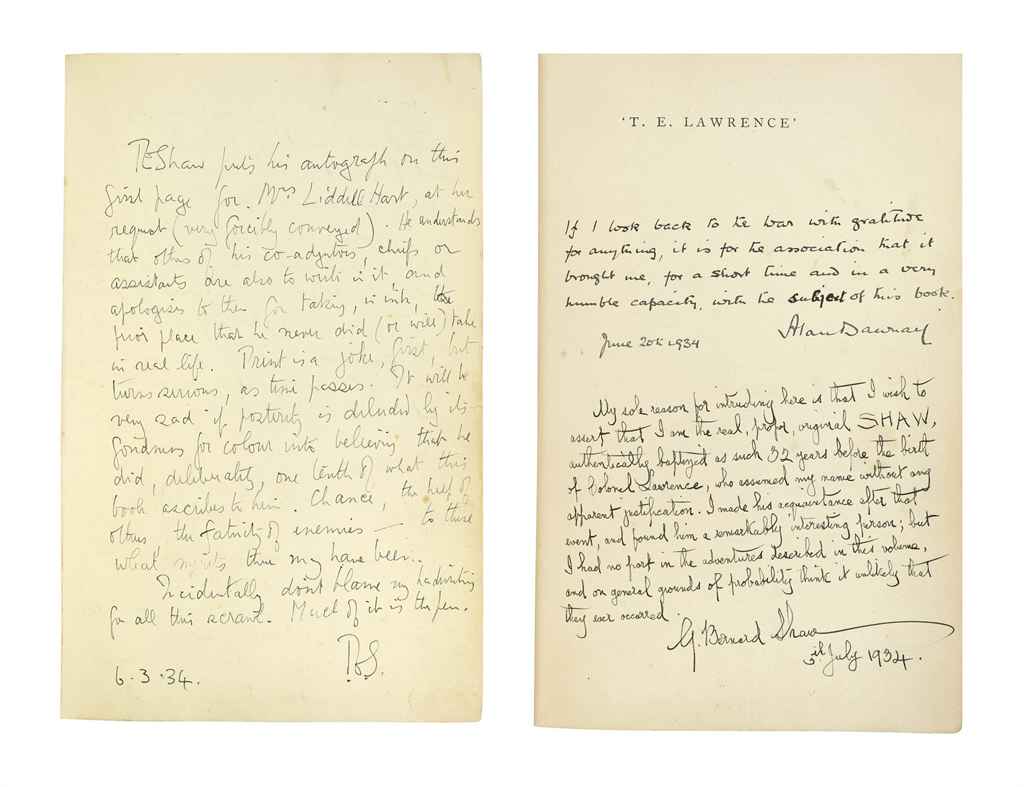 TEShaw puts his autograph on this
first page for Mrs Liddell Hart, at her
request (very forcibly conveyed). He understands
that others of his co-adjutors, chiefs or
assistants are also to write in it and
apologises to them for taking, in ink, the
prior place that he never did (or will) take
in real life. Print is a joke, first, but
turns serious, as time passes. It will be
very sad if posterity is deluded by its
fondness for colour into believing that he
did, deliberately, one tenth of what this
book ascribes to him. Chance, the help of
others, the fatuity of enemies — to these
what merits there may have been.
Incidentally don't blame my handwriting
for all this scrawl. Much of it is the pen.
T.E.S.
6.3.34.
'T. E. LAWRENCE'
If I look back to the war with gratitude
for anything, it is for the association that it
brought me, for a short time and in a very
humble capacity, with the subject of this book.
Alan Dawnay
June 20th 1934
My sole reason for intruding here is that I wish to
assert that I am the real, proper, original SHAW,
authentically baptized as such 32 years before the birth
of Colonel Lawrence, who assumed my name without any
apparent justification. I made his acquaintance after that
event, and found him a remarkably interesting person; but
I had no part in the adventures described in this volume,
and on general grounds of probability think it unlikely that
they ever occurred.
G. Bernard Shaw
5th July 1934.